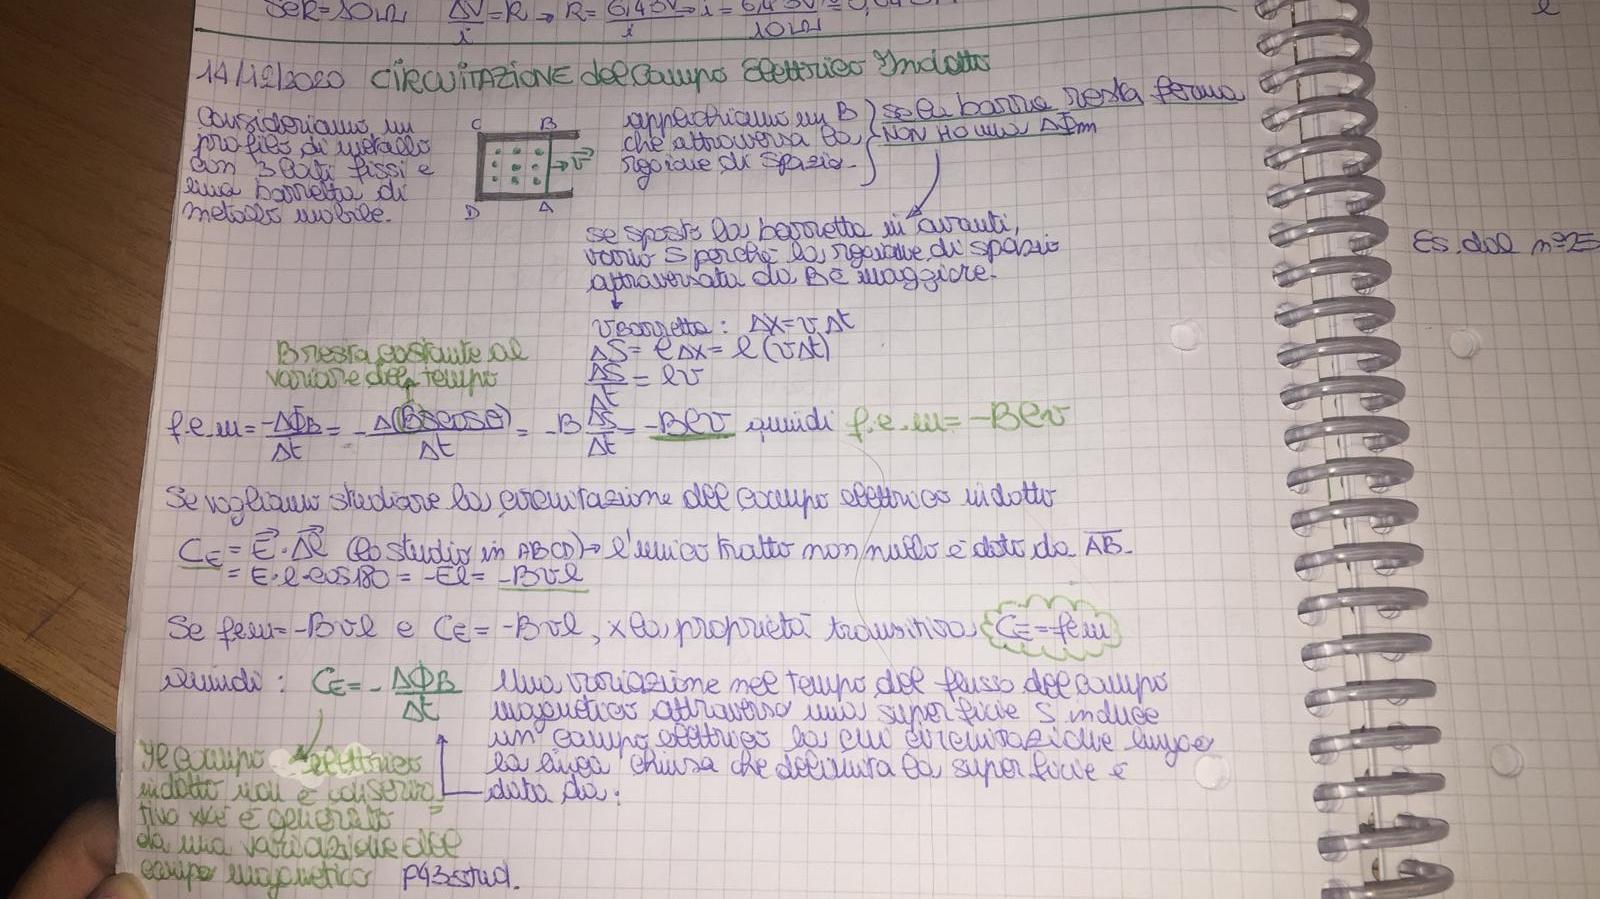 SeR=10Ω ΔV/i=R → R= 6,45V/i → i= 6,45V/10Ω
14/12/2020 CIRCUITAZIONE del campo Elettrico Indotto
Consideriamo un
profilo di metallo
con 3 lati fissi e
una barretta di
metallo mobile.
C B
v
D A
applichiamo un B
che attraversa la
regione di spazio.
se la barra resta ferma
NON HO una ΔΦm
se sposto la barretta in avanti,
vario S perchè la regione di spazio
attraversata da B è maggiore.
Vbarretta: Δx=vΔt
ΔS= lΔx= l(vΔt)
ΔS/Δt = lv
B resta costante al
variare del tempo
f.e.m= -ΔΦB/Δt = -Δ(BScosθ)/Δt = -B ΔS/Δt = -Blv quindi f.e.m= -Blv
Se vogliamo studiare la circuitazione del campo elettrico indotto
CE = E·Δl (lo studio in ABCD) → l'unico tratto non nullo è dato da AB.
= E·l·cos180 = -El= -Bvl
Se fem=-Bvl e CE= -Bvl, x la proprietà transitiva CE=fem
Quindi: CE= -ΔΦB/Δt
Una variazione nel tempo del flusso del campo
magnetico attraverso una superficie S induce
un campo elettrico la cui circuitazione lungo
la linea chiusa che delimita la superficie è
data da:
Il campo elettrico
indotto non è conserva
tivo xkè è generato
da una variazione del
campo magnetico p43stud.
Es. dal n°25